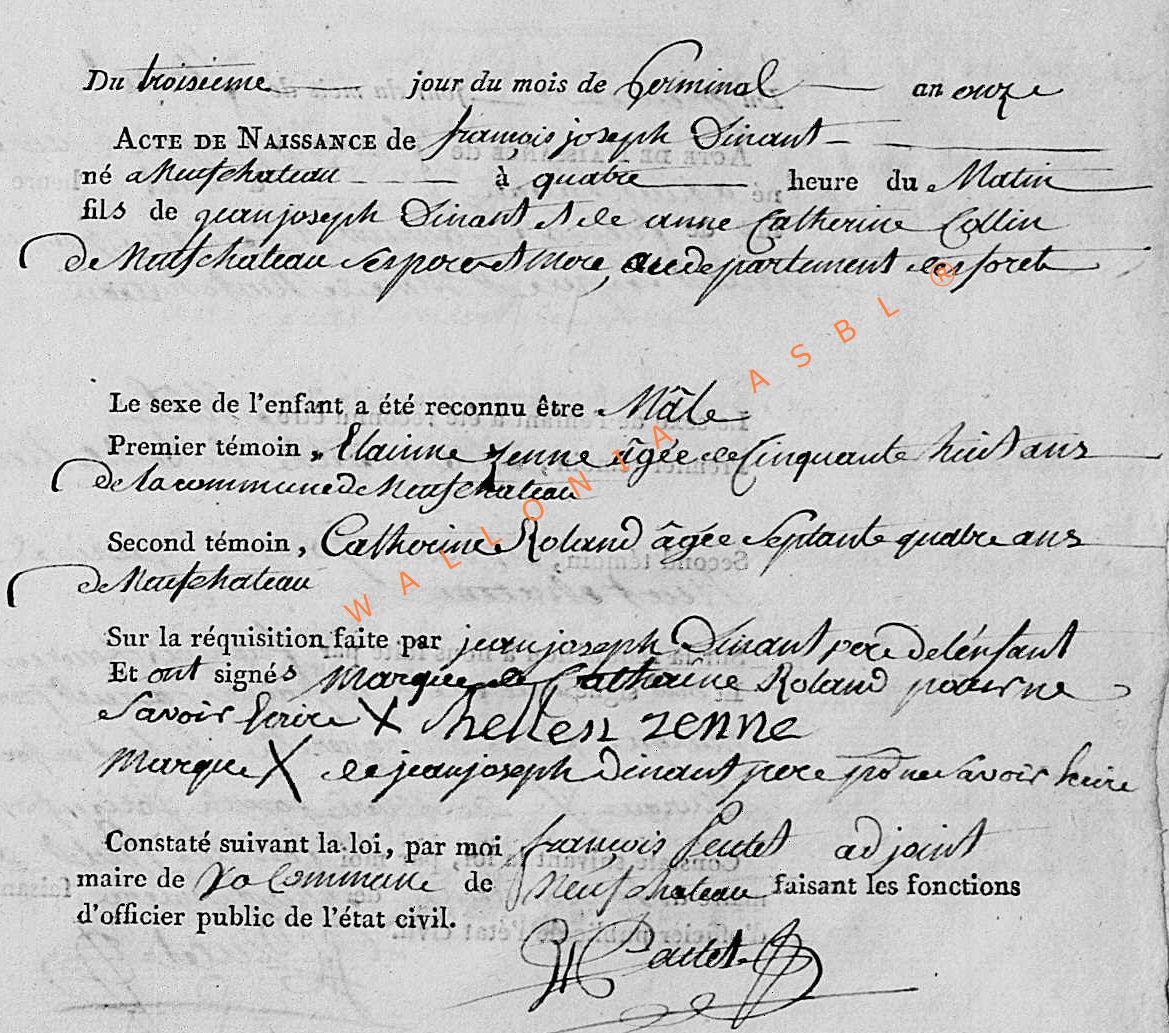 Du troisieme jour du mois de Germinal an onze
ACTE DE NAISSANCE de françois joseph Dinant
né a Neufchateau à quatre heure du Matin
fils de jean joseph Dinant et de anne Catherine Collin
de Neufchateau ses pere et mere, au departement des forets
Le sexe de l'enfant a été reconnu être Mâle
Premier témoin, Elainne zenne âgée de Cinquante huit ans
de la commune de Neufchateau
Second témoin, Catherine Roland âgée Septante quatre ans
de Neufchateau
Sur la réquisition faite par jean joseph Dinant pere de l'enfant
Et ont signés Marque de Catherine Roland pour ne
savoir Ecrire X hellen zenne
Marque X de jean joseph Dinant pere pr ne savoir
Constaté suivant la loi, par moi françois adjoint
maire de La Commune de Neufchateau faisant les fonctions
d'officier public de l'état civil.
WALLONIA ASBL ®